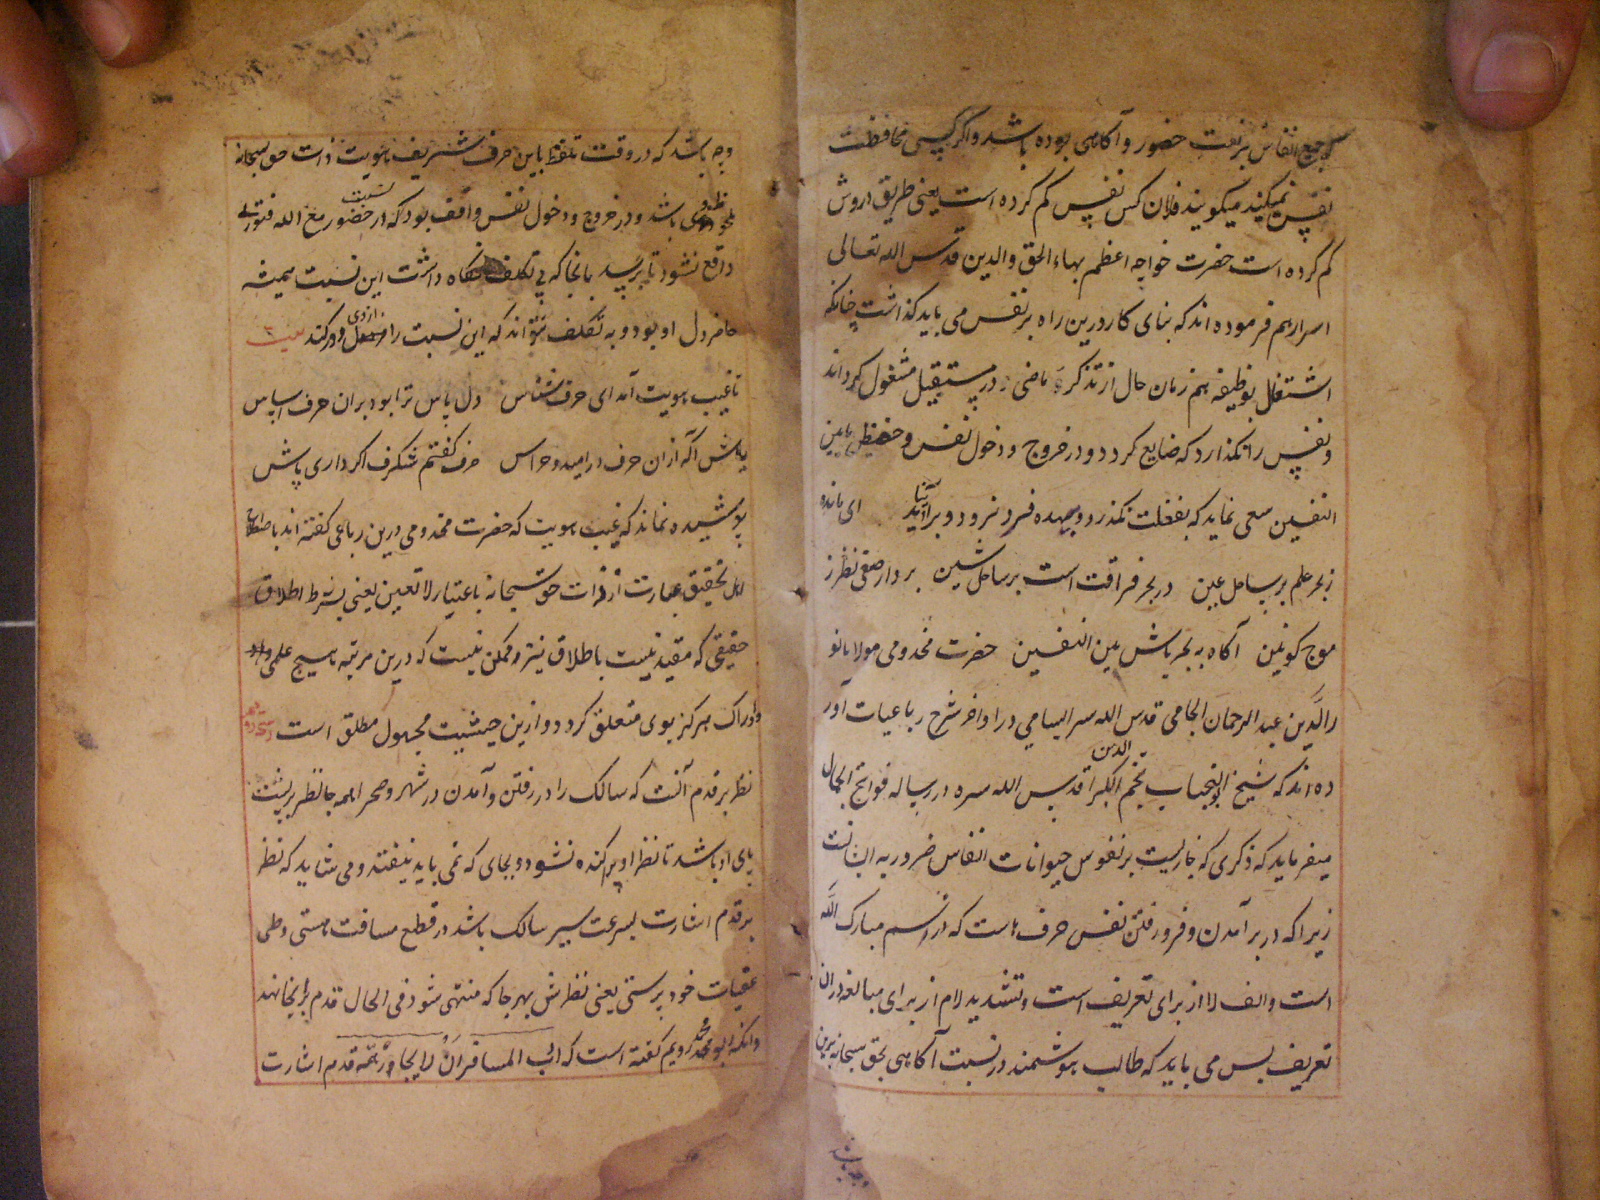 که جمیع انفاس بر نعت حضور و آگاهی بوده باشد و اگر کسی محافظت
نفس نمیکند میگویند فلان کس نفس گم کرده است یعنی طریق و روش
گم کرده است حضرت خواجه اعظم بهاء الحق والدین قدس الله تعالی
اسرارهم فرموده اند که بنای کار درین راه بر نفس می باید گذاشت چنانکه
اشتغال بوظیفه بهم زمان حال از تذکره ماضی و در مستقبل مشغول گرداند
و نفس را نگذارد که ضایع گردد و در خروج و دخول نفس و حفظ مابین
النفسین سعی نماید که بغفلت نگذرد و بیهده فرو نرود و برنیاید ای مانده
ز بحر علم بر ساحل عین در بحر فراقت است بر ساحل شین بردار صفی نظر ز
موج کونین آگاه به بحر باش بین النفسین حضرت مخدومی مولانا نو
رالدین عبد الرحمان الجامی قدس الله سره السامی در اواخر شرح رباعیات آور
ده اند که شیخ ابو الجناب نجم الدین الکبرا قدس الله سره در رساله فواتح الجمال
میفرماید که ذکری که جاریست بر نفوس حیوانات انفاس ضروریه ایشانست
زیرا که در بر آمدن و فرو رفتن نفس حرف ها است که از اسم مبارک الله
است و الف لا از برای تعریف است و تشدید لام از برای مبالغه در ان
تعریف پس می باید که طالب هوشمند در نسبت آگاهی بحق سبحانه برین
وجه باشد
وجه باشد که در وقت تلفظ باین حرف شریف هویت ذات حق سبحانه
ملحوظ وی باشد و در خروج و دخول نفس واقف بود که در نسبت حضور مع الله فتوری
واقع نشود تا برسد بانجا که بی تکلف نگاه داشت این نسبت همیشه
حاضر دل او بود و به تکلف نتواند که این نسبت را از دل دور کند بیت
تا غیب هویت آمد ای حرف شناس دل پاس ترا بود بران حرف اساس
باش آگه ازان حرف در امید و هراس حرفی گفتم شگرف اگر داری پاس
پوشیده نماند که غیب هویت که حضرت مخدومی درین رباعی گفته اند باصطلاح
اهل تحقیق عبارت از ذات حق سبحانه باعتبار لا تعین یعنی بشرط اطلاق
حقیقی که مقید نیست باطلاق نیز و ممکن نیست که درین مرتبه هیچ علمی
وادراک هرگز بوی متعلق گردد و ازین حیثیت مجهول مطلق است
نظر بر قدم آنست که سالک را در رفتن و آمدن در شهر و صحرا همه جا نظر بر پشت
پای او باشد تا نظر او پراکنده نشود و بجای که نمی باید نیفتد و می شاید که نظر
بر قدم اشارت بسرعت سیر سالک باشد در قطع مسافت هستی و طی
عقبات خود پرستی یعنی نظرش بهر جا که منتهی شود فی الحال قدم برانجا نهد
و آنکه ابو محمد رویم گفته است که ادب المسافر ان لا یجاوز همه قدمه اشارت